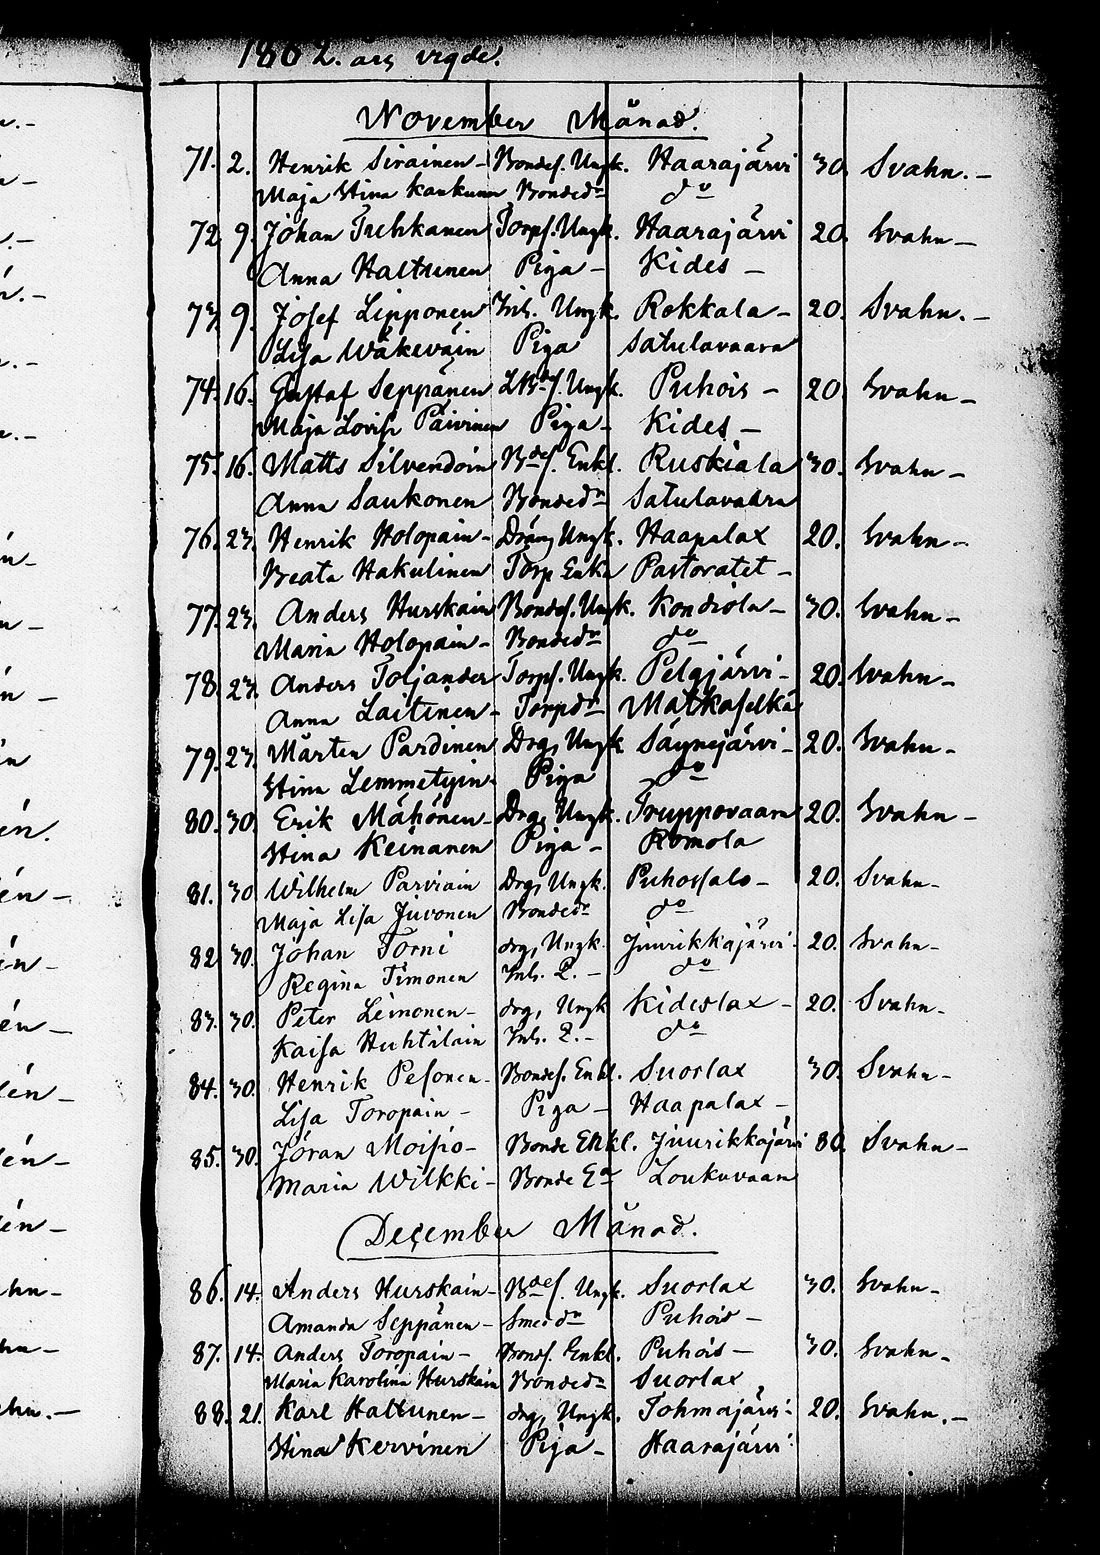 1862. års vigde.
November Månad.
71. 2. Henrik Sirainen - Bondes. Ungk. Haarajärvi 30. Svahn. -
Maja Stina Kaukunen Bonded:r do
72 9. Johan Tuhkanen Torps. Ungk. Haarajärvi 20. Svahn -
Anna Haltunen Piga - Kides -
73. 9. Josef Lipponen Inh. Ungk. Rokkala - 20. Svahn. -
Lisa Wäkeväin Piga Satulavaara
74. 16. Gustaf Seppänen Ungk. Puhois - 20. Svahn -
Maja Lovisa Päivinen Piga - Kides -
75. 16. Matts Silvendoin B:des. Enkl. Ruskiala 30. Svahn -
Anna Saukonen Bonded:r Satulavaara
76. 23. Henrik Holopain - Dräng Ungk. Haapalax 20. Svahn -
Beata Hakulinen Torp Enka Pastoratet -
77. 23. Anders Hurskain Bondes. Ungk. Kondiola - 30. Svahn -
Maria Holopain - Bonded:r do
78. 23. Anders Toljander Torps. Ungk. Pelgjärvi - 20. Svahn -
Anna Laitinen - Torpd:r Matkaselkä
79. 23. Mårten Pardinen Drg, Ungk Säynejärvi - 20. Svahn -
Stina Lemmetyin - Piga do
80. 30. Erik Mähönen - Drg, Ungk. Truppovaara 20. Svahn -
Stina Keinänen Piga - Romola
81. 30 Wilhelm Parviain Drg, Ungk. Puhossalo - 20. Svahn -
Maja Lisa Juvonen Bonded:r do
82 30. Johan Torni drg, Ungk. Juurikkajärvi - 20. Svahn -
Regina Timonen Inh. P. - do
83. 30. Peter Leinonen - drg, Ungk Kideslax - 20. Svahn -
Kaisa Huhtilain Inh. P. - do
84. 30. Henrik Pesonen - Bondes. Enkl. Suorlax 30. Svahn -
Lisa Toropain - Piga - Haapalax -
85. 30. Jöran Moisio - Bonde Enkl. Juurikkajärvi 30. Svahn -
Maria Wilkki - Bonde E:a Loukuvaara
December Månad.
86. 14. Anders Hurskain - B:des. Ungk. Suorlax 30. Svahn -
Amanda Seppänen - Smedd:r Puhois -
87. 14. Anders Toropain - Bonds. Enkl. Puhois - 30. Svahn -
Maria Karolina Hurskain Bonded:r Suorlax
88. 21. Karl Haltunen - drg, Ungk. Tohmajärvi - 20. Svahn. -
Stina Kervinen Piga - Haarajärvi